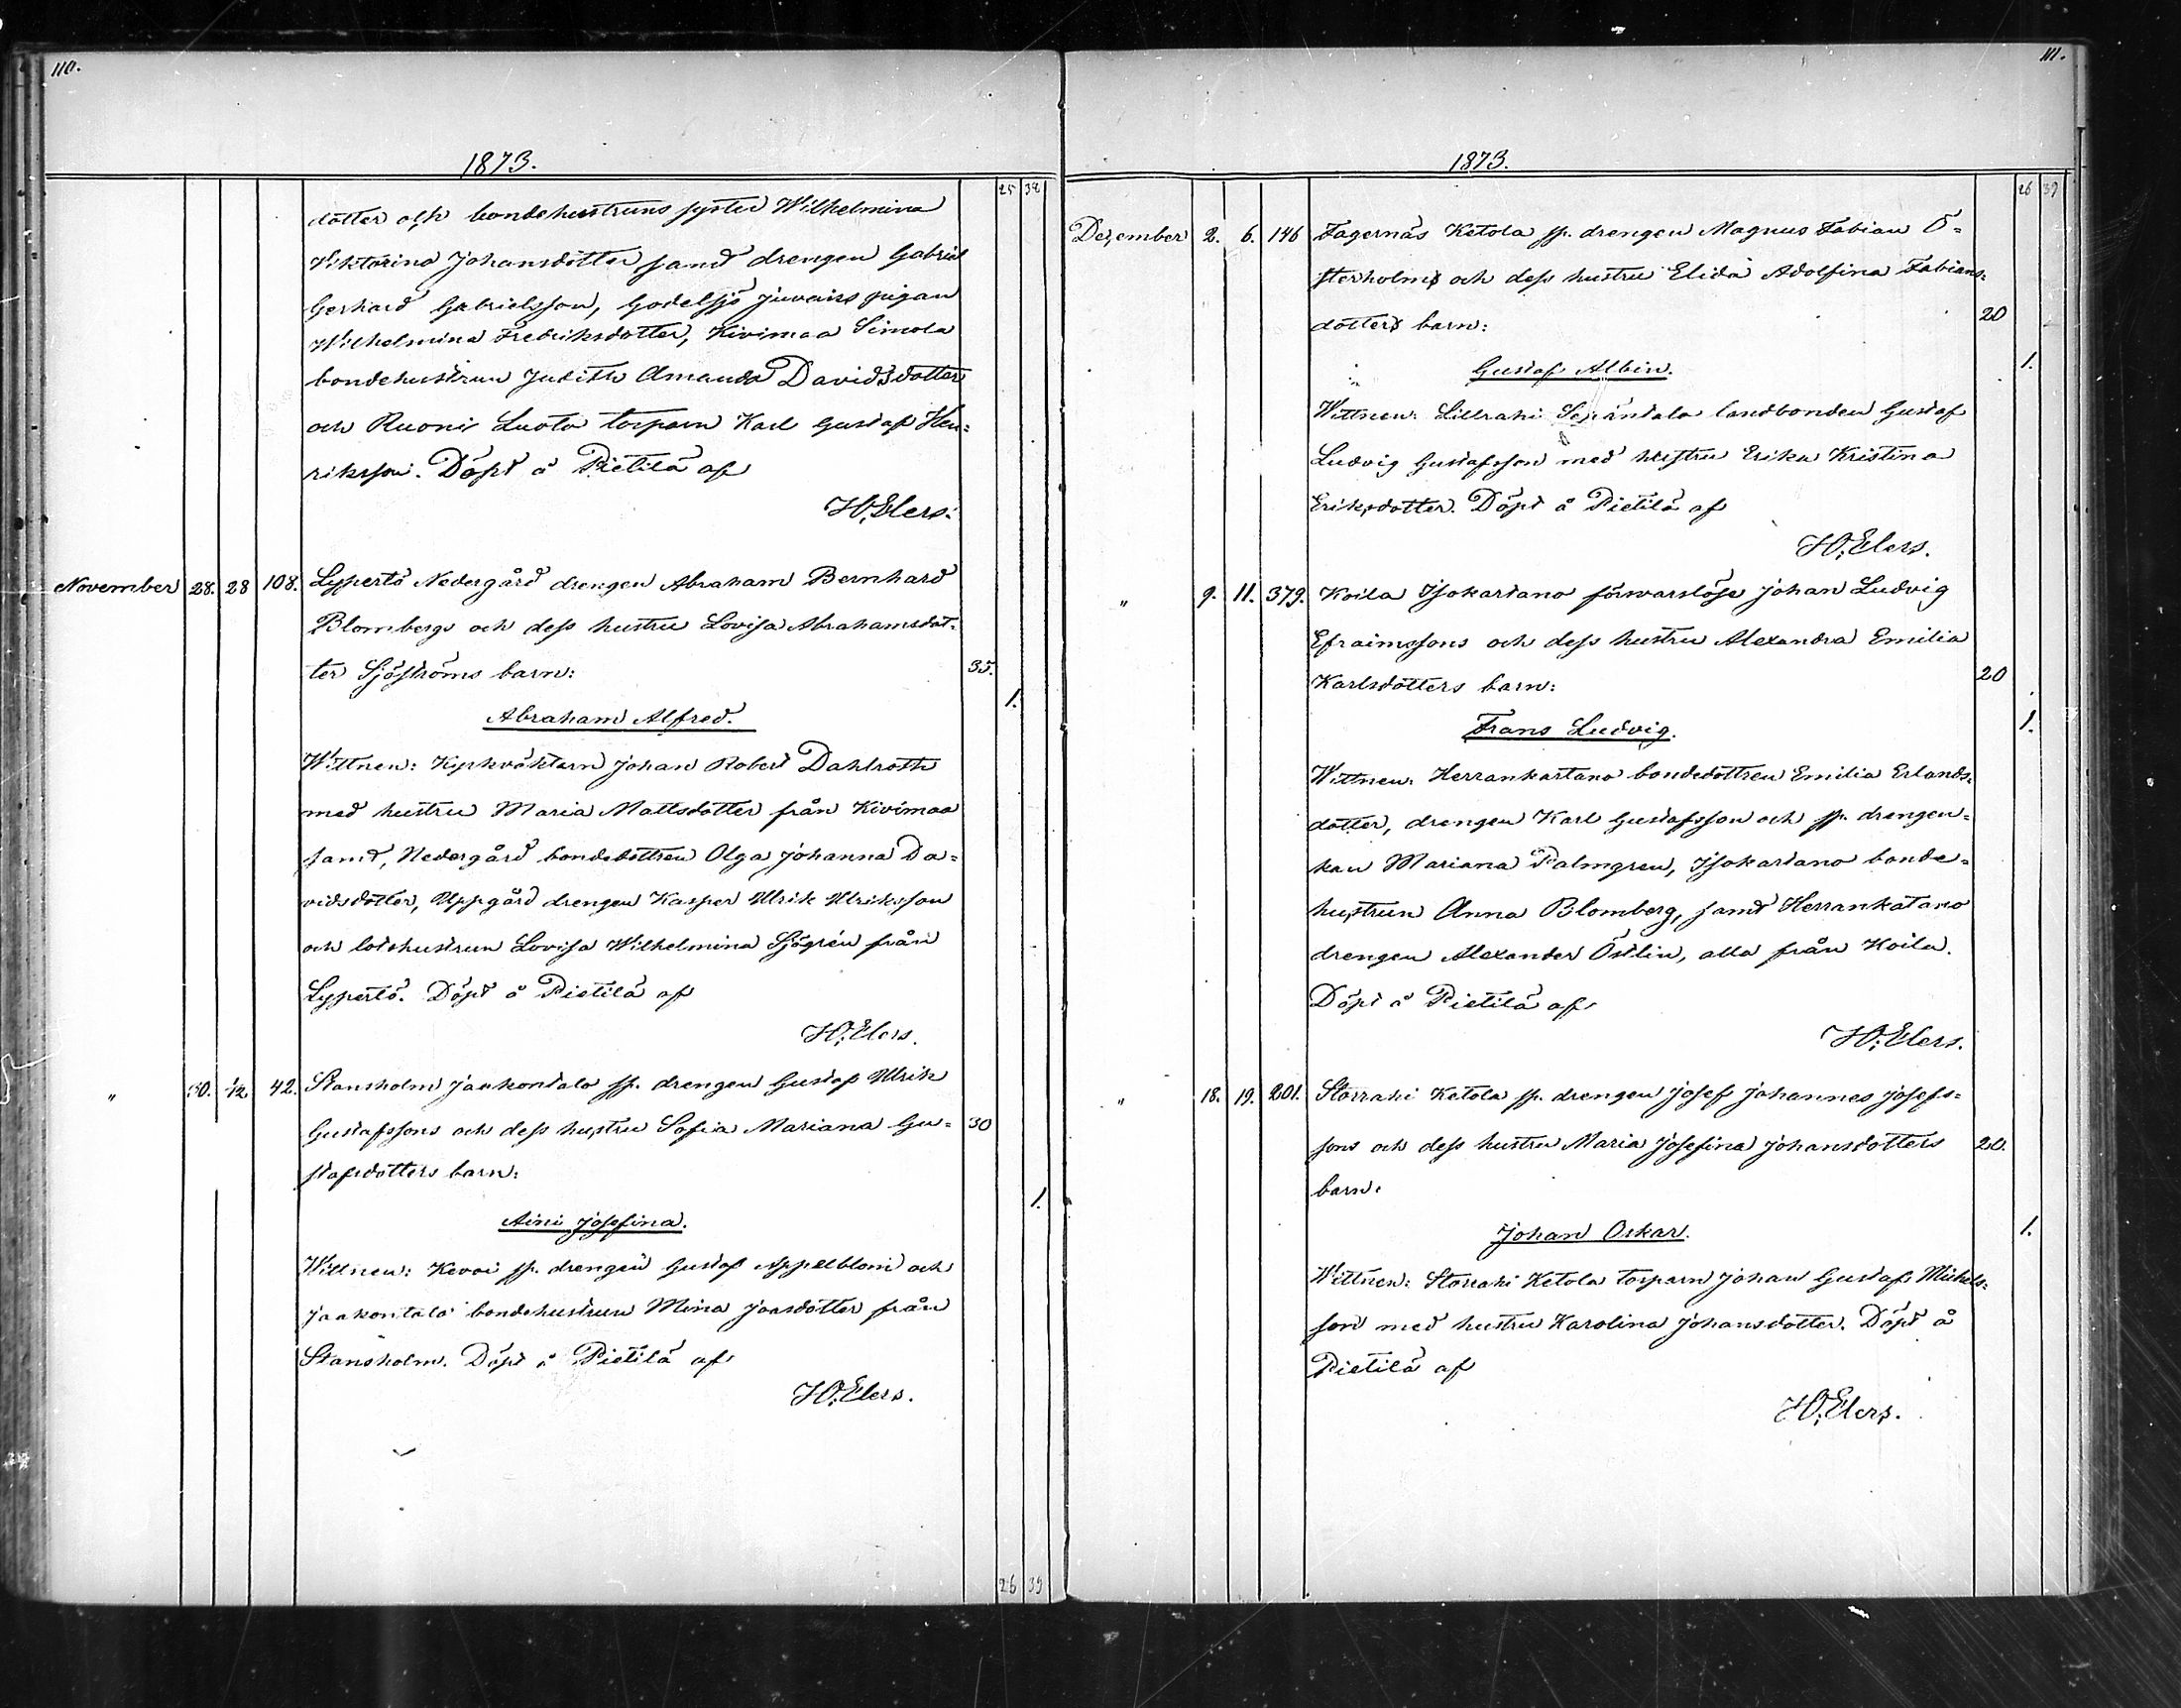 110.
1873.
25 38
dotter och bondehustruns syster Wilhelmina
Viktorina Johansdotter samt drengen Gabriel
Gerhard Gabrielsson, Godelsjö Juvais pigan
Wilhelmina Fredriksdotter, Kivimaa Simola
bondehustrun Judith Amanda Davidsdotter
och Ruonis Luoto torparn Karl Gustaf Hen=
riksson. Döpt å Pietilä af
H. Elers.
November 28. 28 108. Lypertö Nedergård drengen Abraham Bernhard
Blombergs och dess hustru Lovisa Abrahamsdot=
ter Sjöströms barn: 35.
1.
Abraham Alfred.
Wittnen: Kyrkväktarn Johan Robert Dahlroth
med hustru Maria Mattsdotter från Kivimaa
samt, Nedergård bondedottren Olga Johanna Da=
vidsdotter, Uppgård drengen Kasper Ulrik Ulriksson
och lotshustrun Lovisa Wilhelmina Sjögrén från
Lypertö. Döpt å Pietilä af
H. Elers.
" 30. 1/12. 42. Stansholm Jaakontalo sp. drengen Gustaf Ulrik
Gustafssons och dess hustru Sofia Mariana Gu= 30
stafsdotters barn:
1.
Aini Josefina.
Wittnen: Kevoi sp. drengen Gustaf Appelblom och
Jaakontalo bondehustrun Mina Joasdotter från
Stansholm. Döpt å Pietilä af
H. Elers.
26 39
111.
1873.
26 39
Dezember 2. 6. 146 Fagernäs Ketola sp. drengen Magnus Fabian Ö=
sterholms och dess hustru Elida Adolfina Fabians=
dotters barn: 20
1.
Gustaf Albin.
Wittnen: Lillrahi landbonden Gustaf
Ludvig Gustafsson med hustru Erika Kristina
Eriksdotter. Döpt å Pietilä af
H. Elers.
" 9. 11. 379. Koila Isokartano försvarslöse Johan Ludvig
Efraimssons och dess hustru Alexandra Emilia
Karlsdotters barn: 20
1.
Frans Ludvig.
Wittnen: Herrankartano bondedottren Emilia Erlands=
dotter, drengen Karl Gustafsson och sp. drengen=
kan Mariana Palmgren, Isokartano bonde=
hustrun Anna Blomberg, samt Herrankatano
drengen Alexander Östlin, alla från Koila.
Döpt å Pietilä af
H. Elers.
" 18. 19. 201. Storrahi Ketola sp. drengen Josef Johannes Josefs=
sons och dess hustru Maria Josefina Johansdotters 20.
barn:
Johan Oskar. 1.
Wittnen: Storrahi Ketola torparn Johan Gustaf Michels=
son med hustru Karolina Johansdotter. Döpt å
Pietilä af
H. Elers.